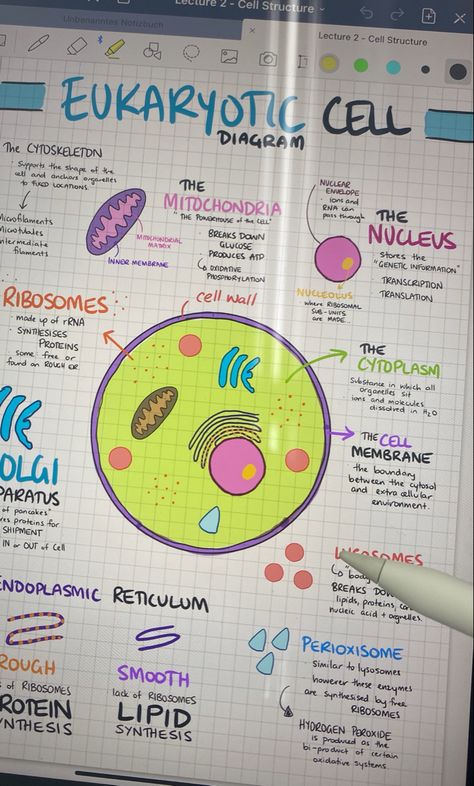 Lecture 2 - Cell Structure
Unbenanntes Notizbuch
Lecture 2 - Cell Structure
EUKARYOTIC CELL
DIAGRAM
The CYTOSKELETON
· Supports the shape of the
cell and anchors organelles
to fixed LOCATIONS.
Microfilaments
Microtubules
intermediate
filaments
THE
MITOCHONDRIA
"THE POWERHOUSE of the CELL"
· BREAKS DOWN
GLUCOSE
· PRODUCES ATP
OXIDATIVE
PHOSPHORYLATION
MITOCHONDRIAL
MATRIX
INNER MEMBRANE
NUCLEAR
ENVELOPE
· ions and
RNA can
pass through
THE
NUCLEUS
stores the
"GENETIC INFORMATION"
TRANSCRIPTION
TRANSLATION
NUCLEOLUS
where RIBOSOMAL
SUB-UNITS
are MADE
RIBOSOMES
made up of rRNA
· SYNTHESISES
PROTEINS
some free or
found on ROUGH ER
cell wall
THE
CYTOPLASM
Substance in which all
organelles sit
ions and molecules
dissolved in H2O
THE CELL
MEMBRANE
the boundary
between the cytosol
and extra cellular
environment.
OLGI
PARATUS
of pancakes"
res proteins for
SHIPMENT
IN or OUT of Cell
LYSOSOMES
"body
BREAKS DOWN
lipids, proteins,
nucleic acid + organelles.
ENDOPLASMIC RETICULUM
ROUGH
s of RIBOSOMES
PROTEIN
SYNTHESIS
SMOOTH
lack of RIBOSOMES
LIPID
SYNTHESIS
PERIOXISOME
· Similar to lysosomes
however these enzymes
are synthesised by free
RIBOSOMES
HYDROGEN PEROXIDE
is produced as the
bi-product of certain
oxidative systems.